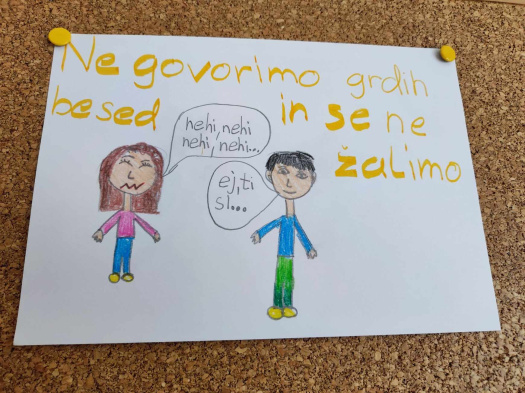 Ne govorimo grdih
besed in se ne
žalimo
nehi, nehi
nehi, nehi...
ej, ti
si...